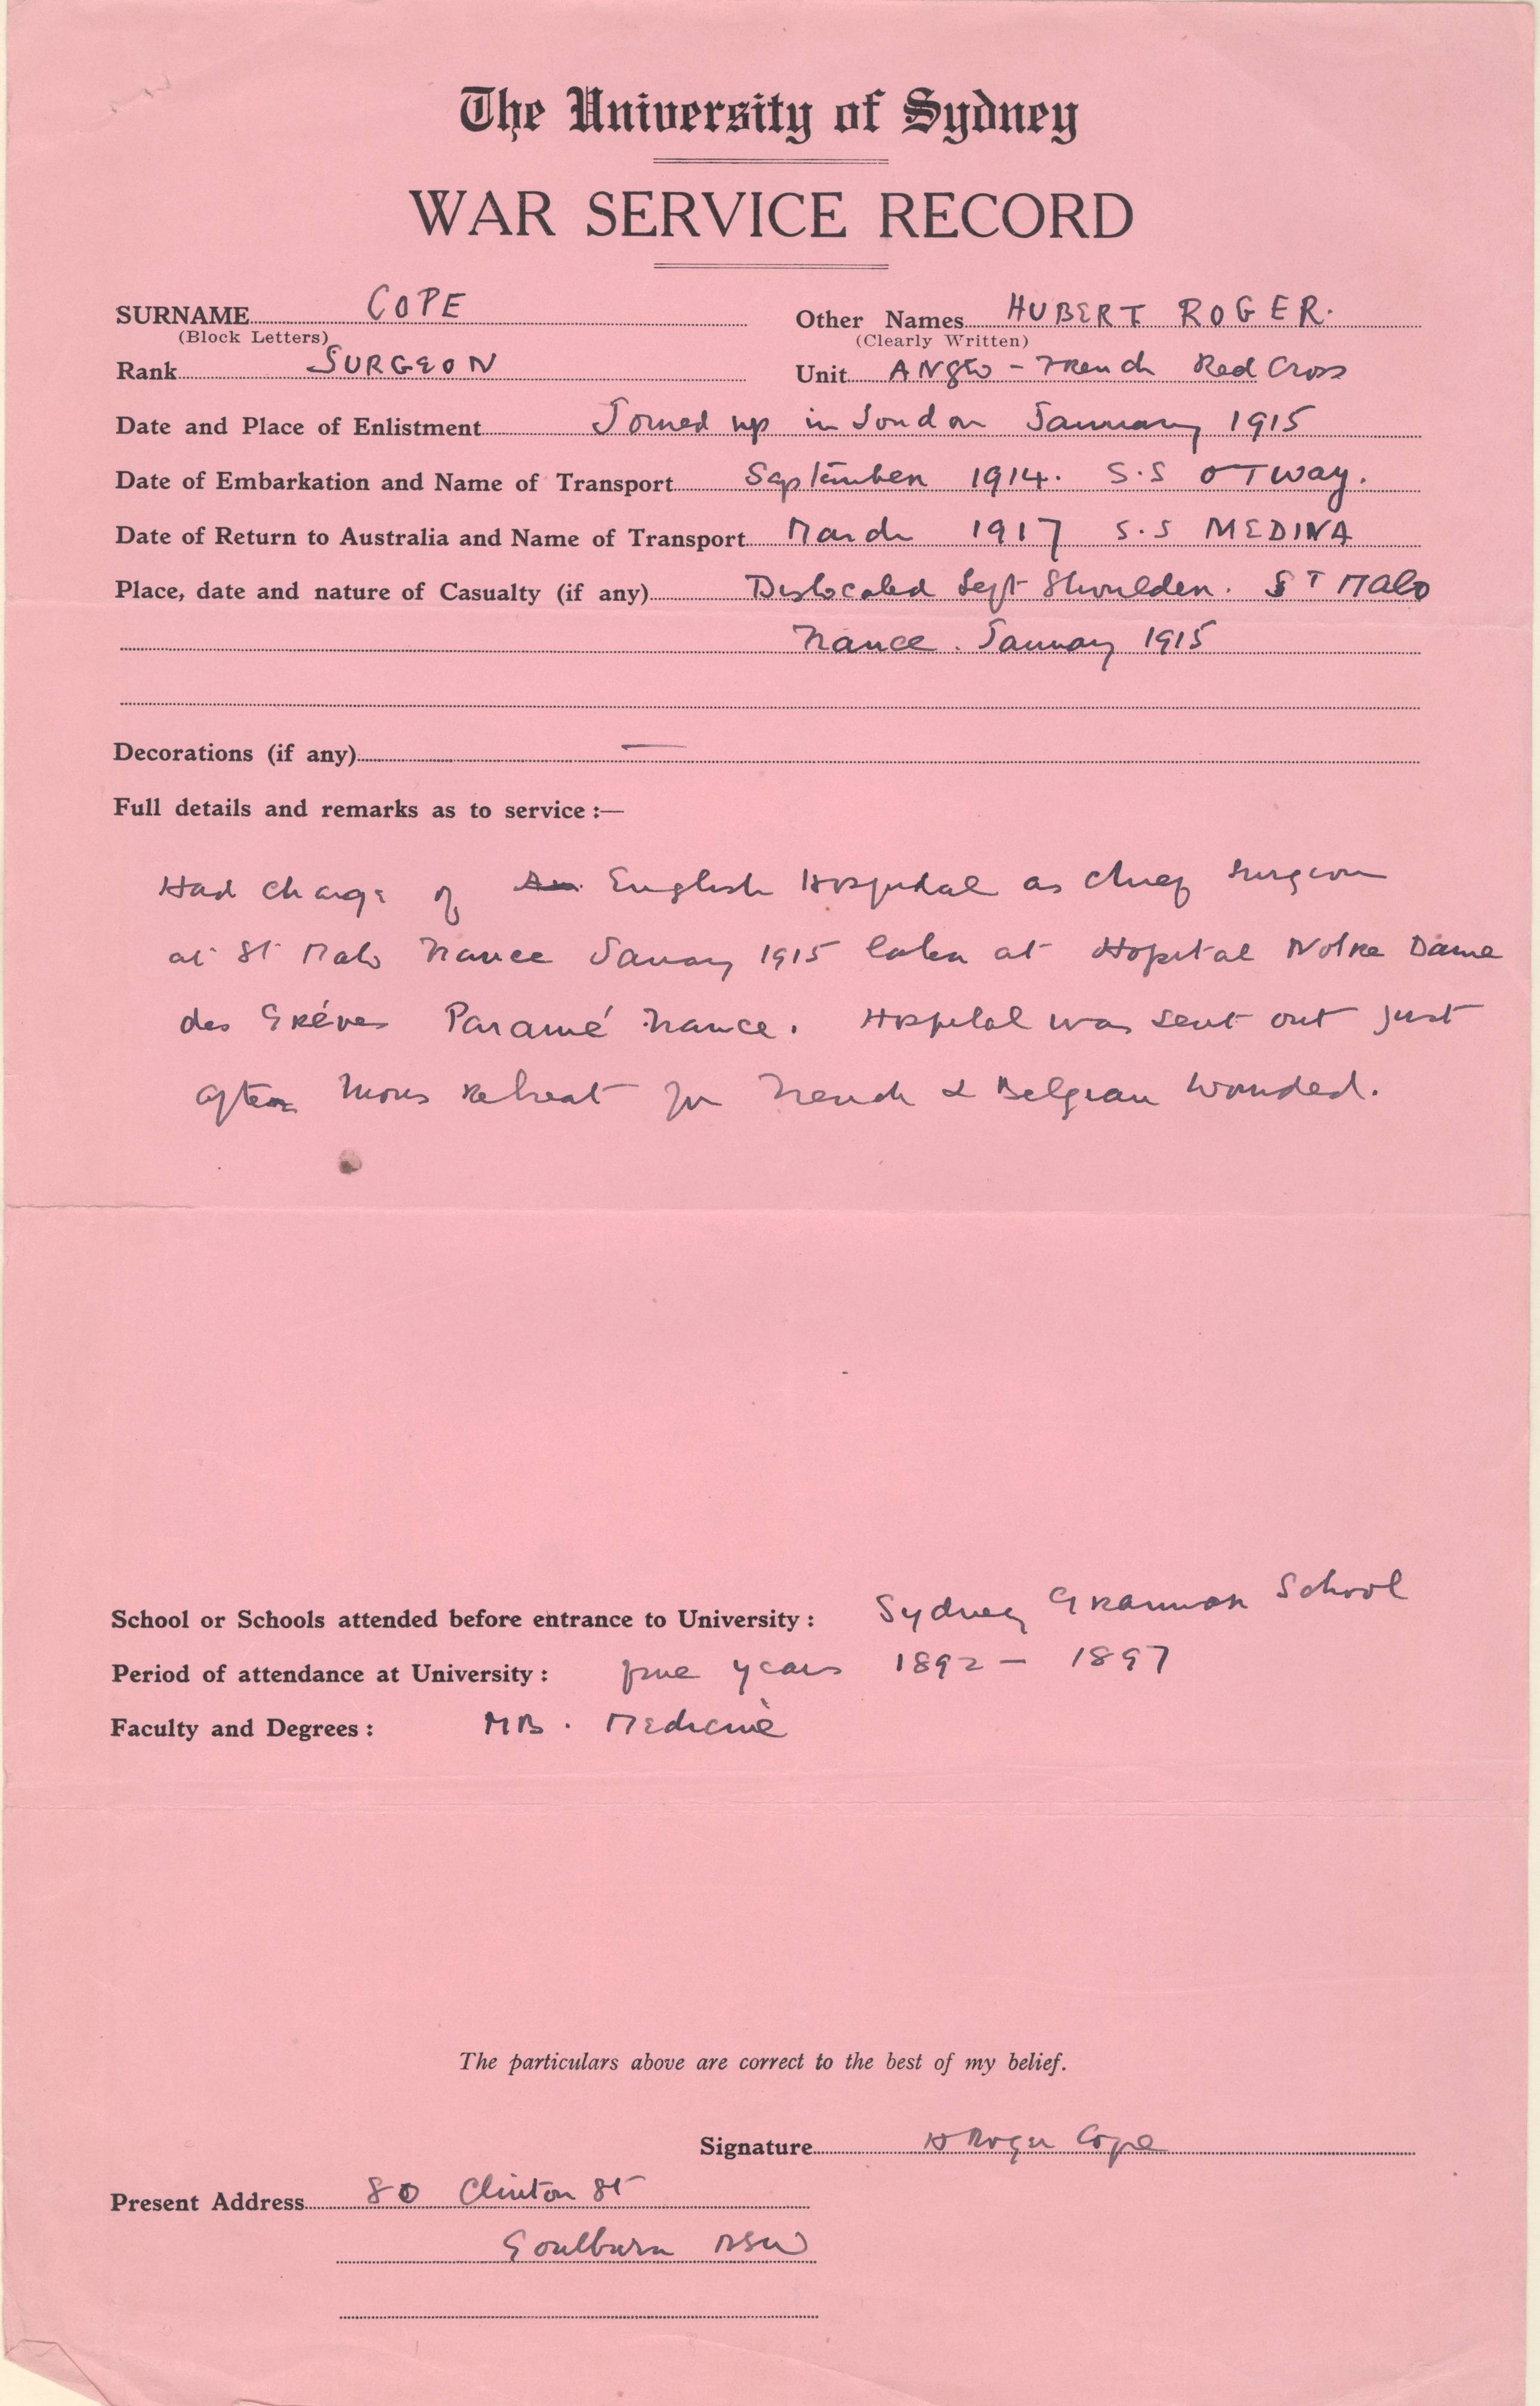 The University of Sydney
WAR SERVICE RECORD
SURNAME COPE Other Names HUBERT ROGER.
(Block Letters) (Clearly Written)
Rank SURGEON Unit ANglo - French Red Cross
Date and Place of Enlistment Joined up in London January 1915
Date of Embarkation and Name of Transport September 1914. S.S OTway.
Date of Return to Australia and Name of Transport March 1917 S.S MEDINA
Place, date and nature of Casualty (if any) Dislocated Left Shoulder. ST Malo
France. January 1915
Decorations (if any) —
Full details and remarks as to service :—
Had charge of An English Hospital as chief surgeon
at St Malo France January 1915 later at Hopital Notre Dame
des Gréves Paramé France. Hospital was sent out just
after Mons Retreat for French & Belgian wounded.
School or Schools attended before entrance to University : Sydney Grammar School
Period of attendance at University : five years 1892 — 1897
Faculty and Degrees : MB. Medicine
The particulars above are correct to the best of my belief.
Signature H Roger Cope
Present Address 80 Clinton St
Goulburn NSW